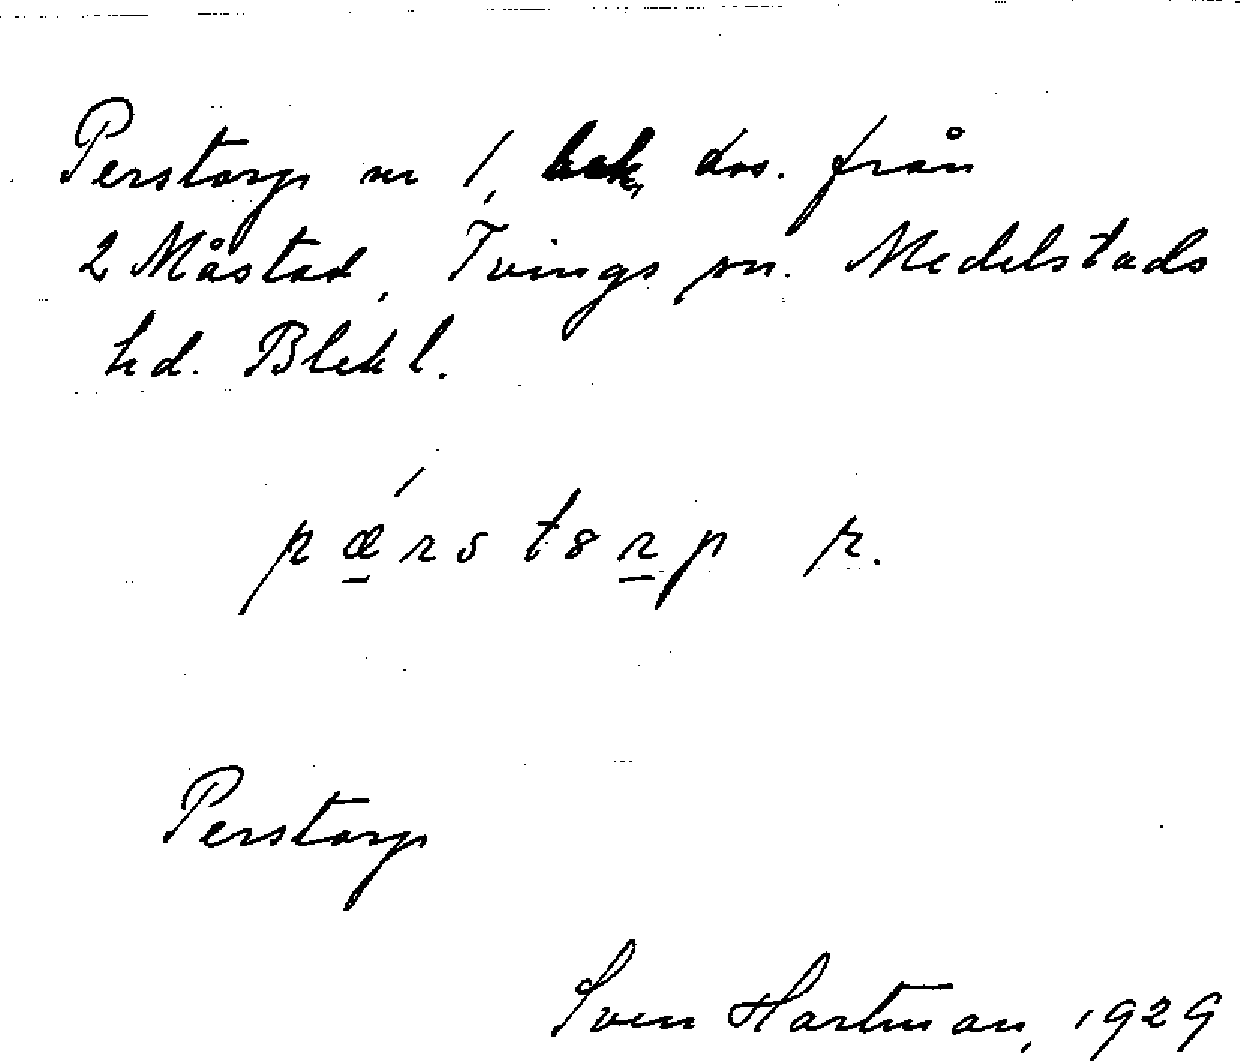 Perstorp nr 1, bek, dos. från
2 Måstad, Tvings sn. Medelstads
hd. Blek l.
pǽrst8rp r.
Perstorp
Sven Hartman, 1929